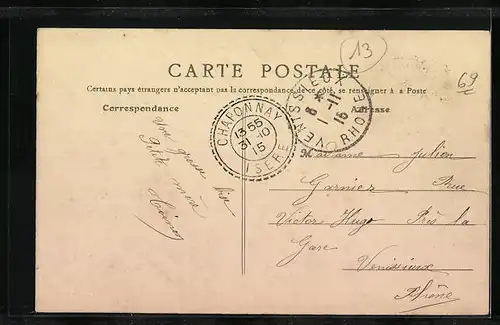 13
CARTE POSTALE
69
Certains pays étrangers n'acceptant pas la correspondance de ce côté, se renseigner à la Poste
Correspondance
Adresse
CHAPONNAY
13 55
31 10
15
ISERE
VENISSIEUX
8 *
1 -11
15
RHONE
une grosse bise
Petite mère
Madame Julien
Garnier Rue
Victor Hugo Près la
Gare
Venissieux
Rhône